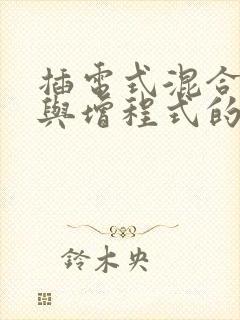 插電式混合
與增程式的
鈴木央